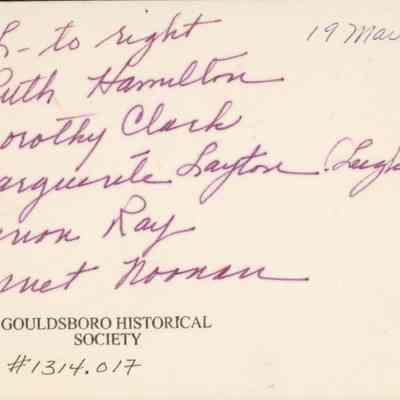 L- to right
19 Mar
uth Hamilton
orothy Clark
arguerite Layton (Leigh
rnon Ray
Noonan
GOULDSBORO HISTORICAL
SOCIETY
#1314.017